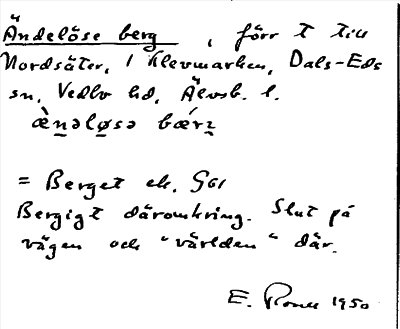 Ändelöse berg, förr t till
Nordsäter, i Klevmarken, Dals-Eds
sn, Vedbo hd, Älvsb. l.
æ̀nəløsə bæ̀rɪ
= Berget ek. G61
Bergigt däromkring. Slut på
vägen och "världen" där.
E. 1950